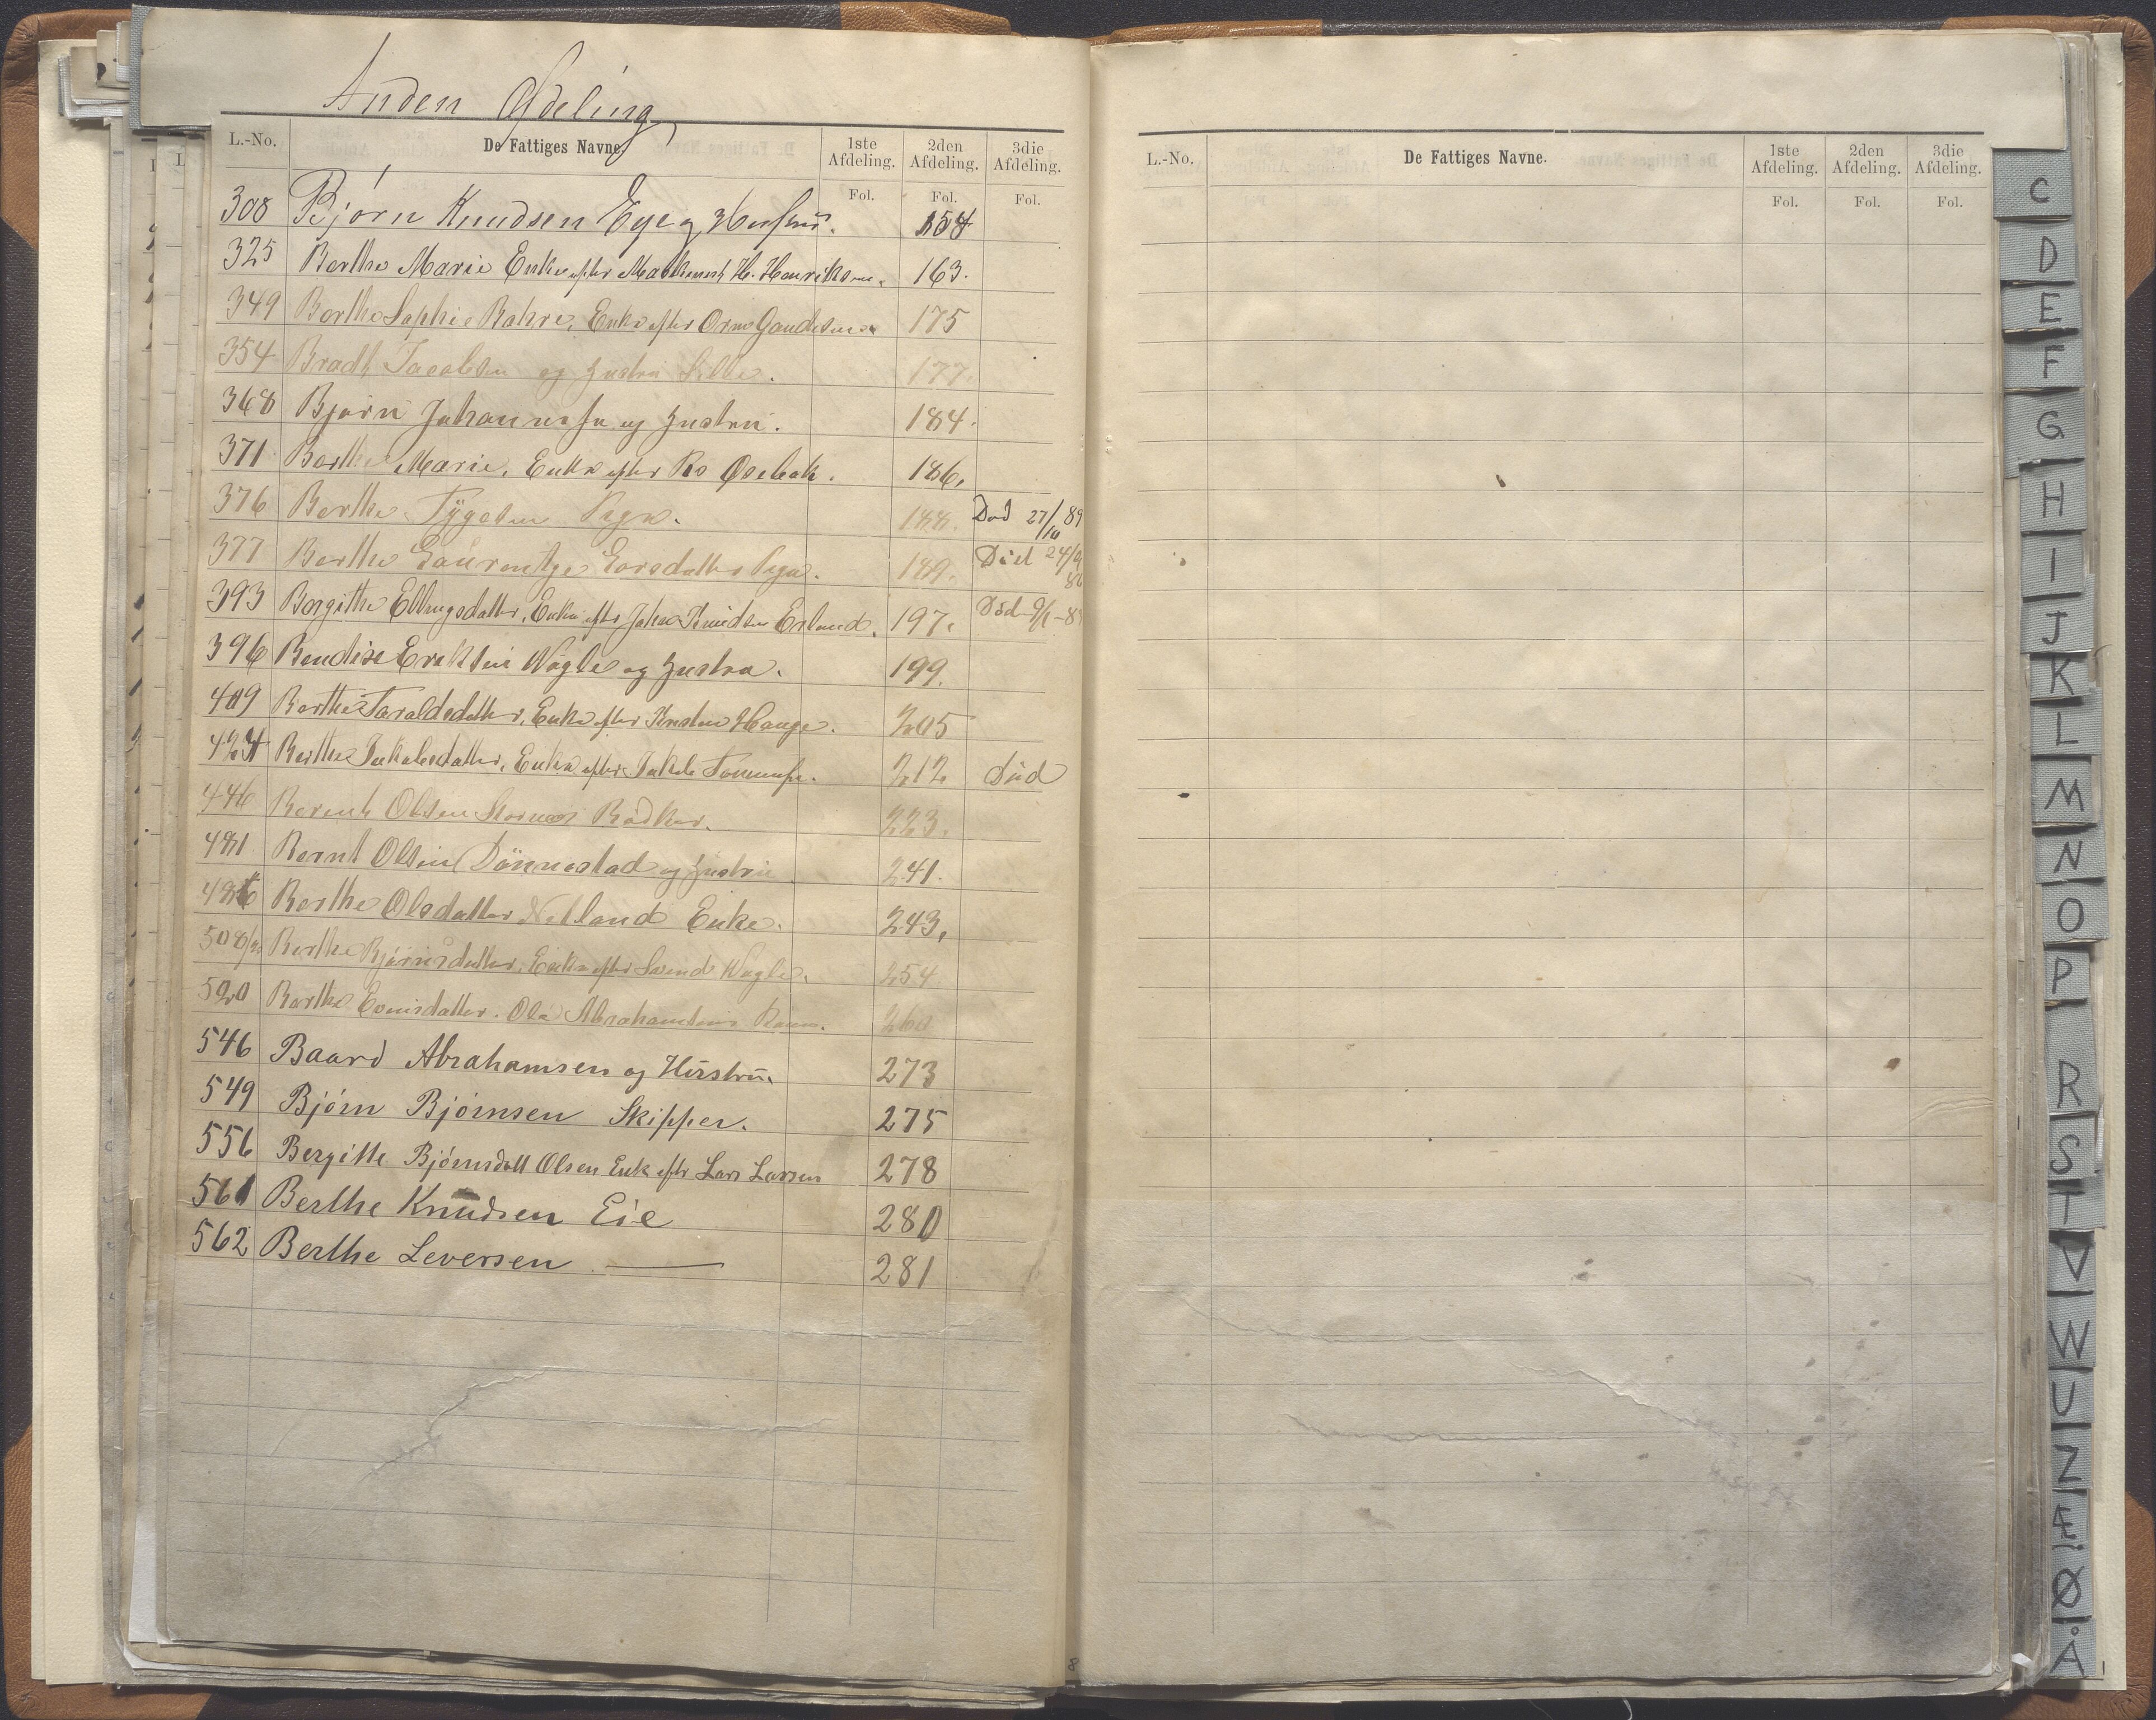 Anden Afdeling
L.-No. De Fattiges Navne. 1ste Afdeling. 2den Afdeling. 3die Afdeling.
Fol. Fol. Fol.
308 Bjørn Knudsen Eye og Hustru. 154
325 Berthe Marie Enke efter H. Henriksen. 163.
349 Berthe Sophie Enke efter 175
354 Jacobsen og Hustru 177.
368 Bjørn Johannesen og Hustru. 184.
371 Berthe Marie, Enke efter 186.
376 Berthe Tygesen Pige. 188. Død 27/10 89
377 Berthe Larsdatter Pige. 189. Död 24/9
393 Bergithe Ellingsdatter, Enke efter Knudsen Erland. 197. Död 9/1-
396 Bendix Eriksen Nagle og Hustru. 199.
409 Berthe Taraldsdatter, Enke efter Hauge. 205
424 Berthe Jakobsdatter, Enke efter 212 Död
446 Berent Olsen Bødker. 223.
481 Bernt Olsen og Hustru 241.
486 Berthe Olsdatter Netland Enke. 243.
508 Berthe Bjørnsdatter, Enke efter Svend Nagle. 254
520 Berthe Abrahamsens 260
546 Baard Abrahamsen og Hustru. 273
549 Bjørn Bjørnsen Skipper. 275
556 Bergitte Bjørnsdatt Olsen Enk eftr Lars Larsen 278
561 Berthe Knudsen Eie 280
562 Berthe Leversen 281
8
L.-No. De Fattiges Navne. 1ste Afdeling. 2den Afdeling. 3die Afdeling.
Fol. Fol. Fol.
C
D
E
F
G
H
I
J
K
L
M
N
O
P
R
S
T
V
W
U
Z
Æ
Ø
Å